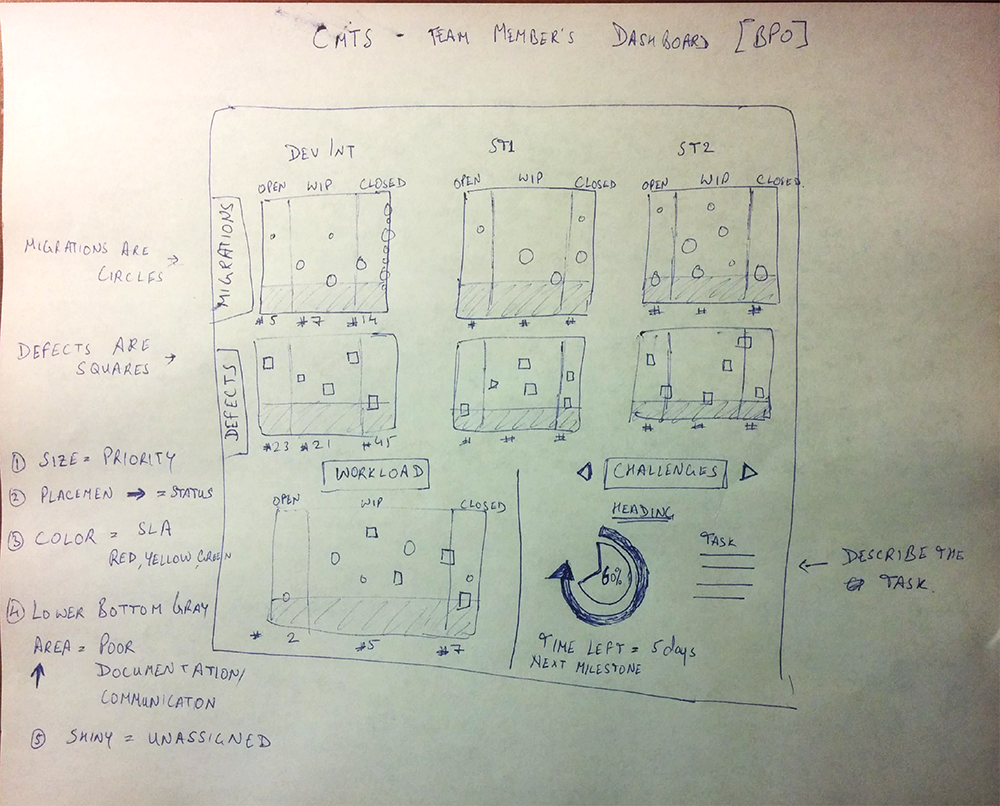 CMTS - TEAM MEMBER'S DASHBOARD [BPO]
DEV INT ST1 ST2
OPEN WIP CLOSED OPEN WIP CLOSED OPEN WIP CLOSED
MIGRATIONS
MIGRATIONS ARE
CIRCLES →
#5 #7 #14 # # # # # #
DEFECTS
DEFECTS ARE →
SQUARES
#23 #21 #45 # # # # # #
WORKLOAD
OPEN WIP CLOSED
# 2 #5 #7
CHALLENGES
HEADING
60%
TASK
TIME LEFT = 5 days
NEXT MILESTONE
← DESCRIBE THE
TASK.
① SIZE = PRIORITY
② PLACEMEN → = STATUS
③ COLOR = SLA
RED, YELLOW GREEN
④ LOWER BOTTOM GRAY
AREA = POOR
↑ DOCUMENTATION/
COMMUNICATON
⑤ SHINY = UNASSIGNED